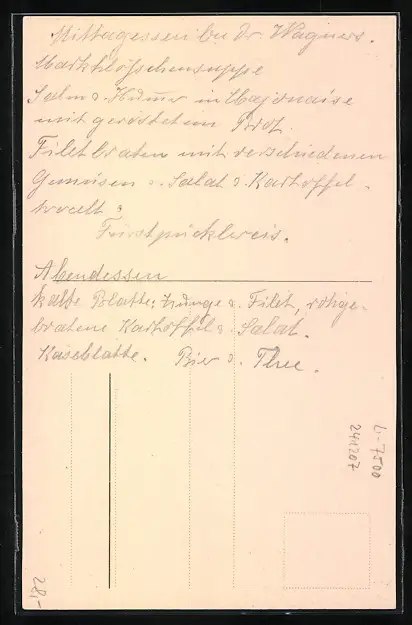 Mittagessen bei Dr Wagners.
Markklöschensuppe
Salm u. Humer in Majonaise
mit geröstetem Brot.
Filetbraten mit verschiedenen
Gemüsen u. Salat u. Kartoffel-
Fürstpücklereis.
Abendessen
kalte Platte; Zunge u. Filet, röhge-
bratene Kartoffel u. Salat.
Käseblatte. Bier u. Thee.
4-7500
241207
28,-